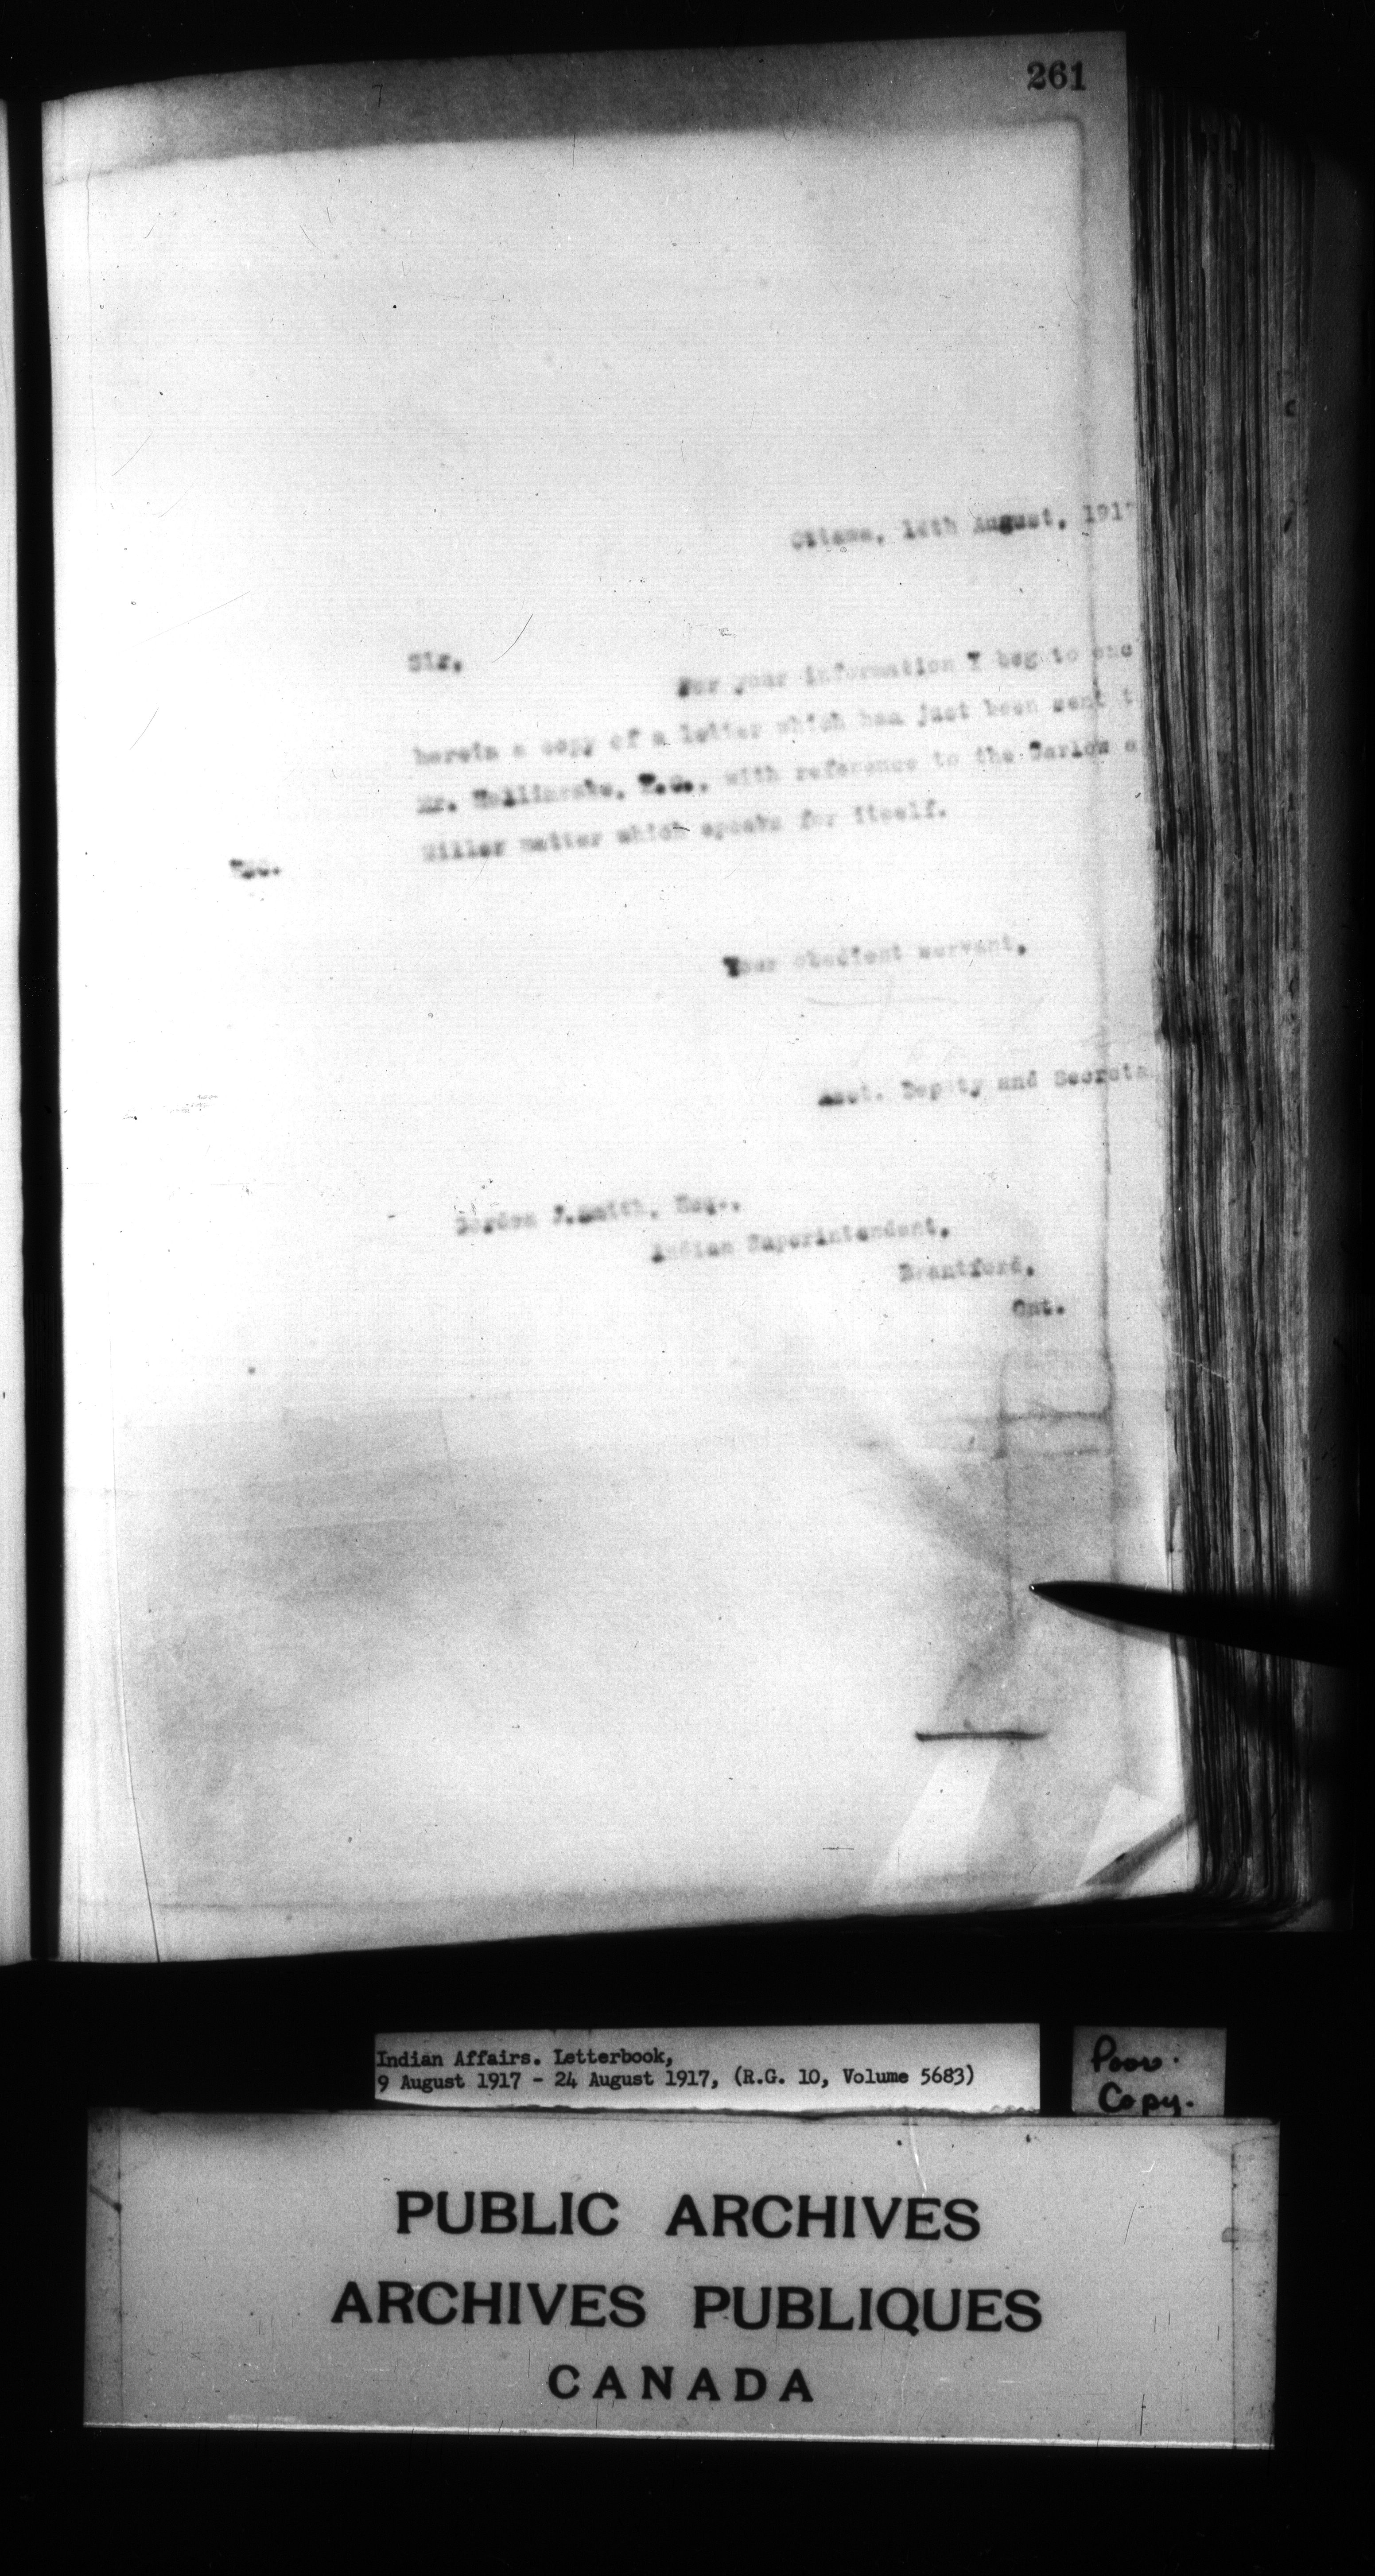 261
Ottawa, 14th August, 191
Sir,
For your information I beg to enc
herein a copy of a letter which has just been sent t
Mr. K.C., with reference to the a
Miller matter which speaks for itself.
Your obedient servant,
Asst. Deputy and Secreta
Gordon J.Smith, Esq.,
Indian Superintendent,
Brantford,
Ont.
Indian Affairs. Letterbook,
9 August 1917 - 24 August 1917, (R.G. 10, Volume 5683)
Poor.
Copy.
PUBLIC ARCHIVES
ARCHIVES PUBLIQUES
CANADA